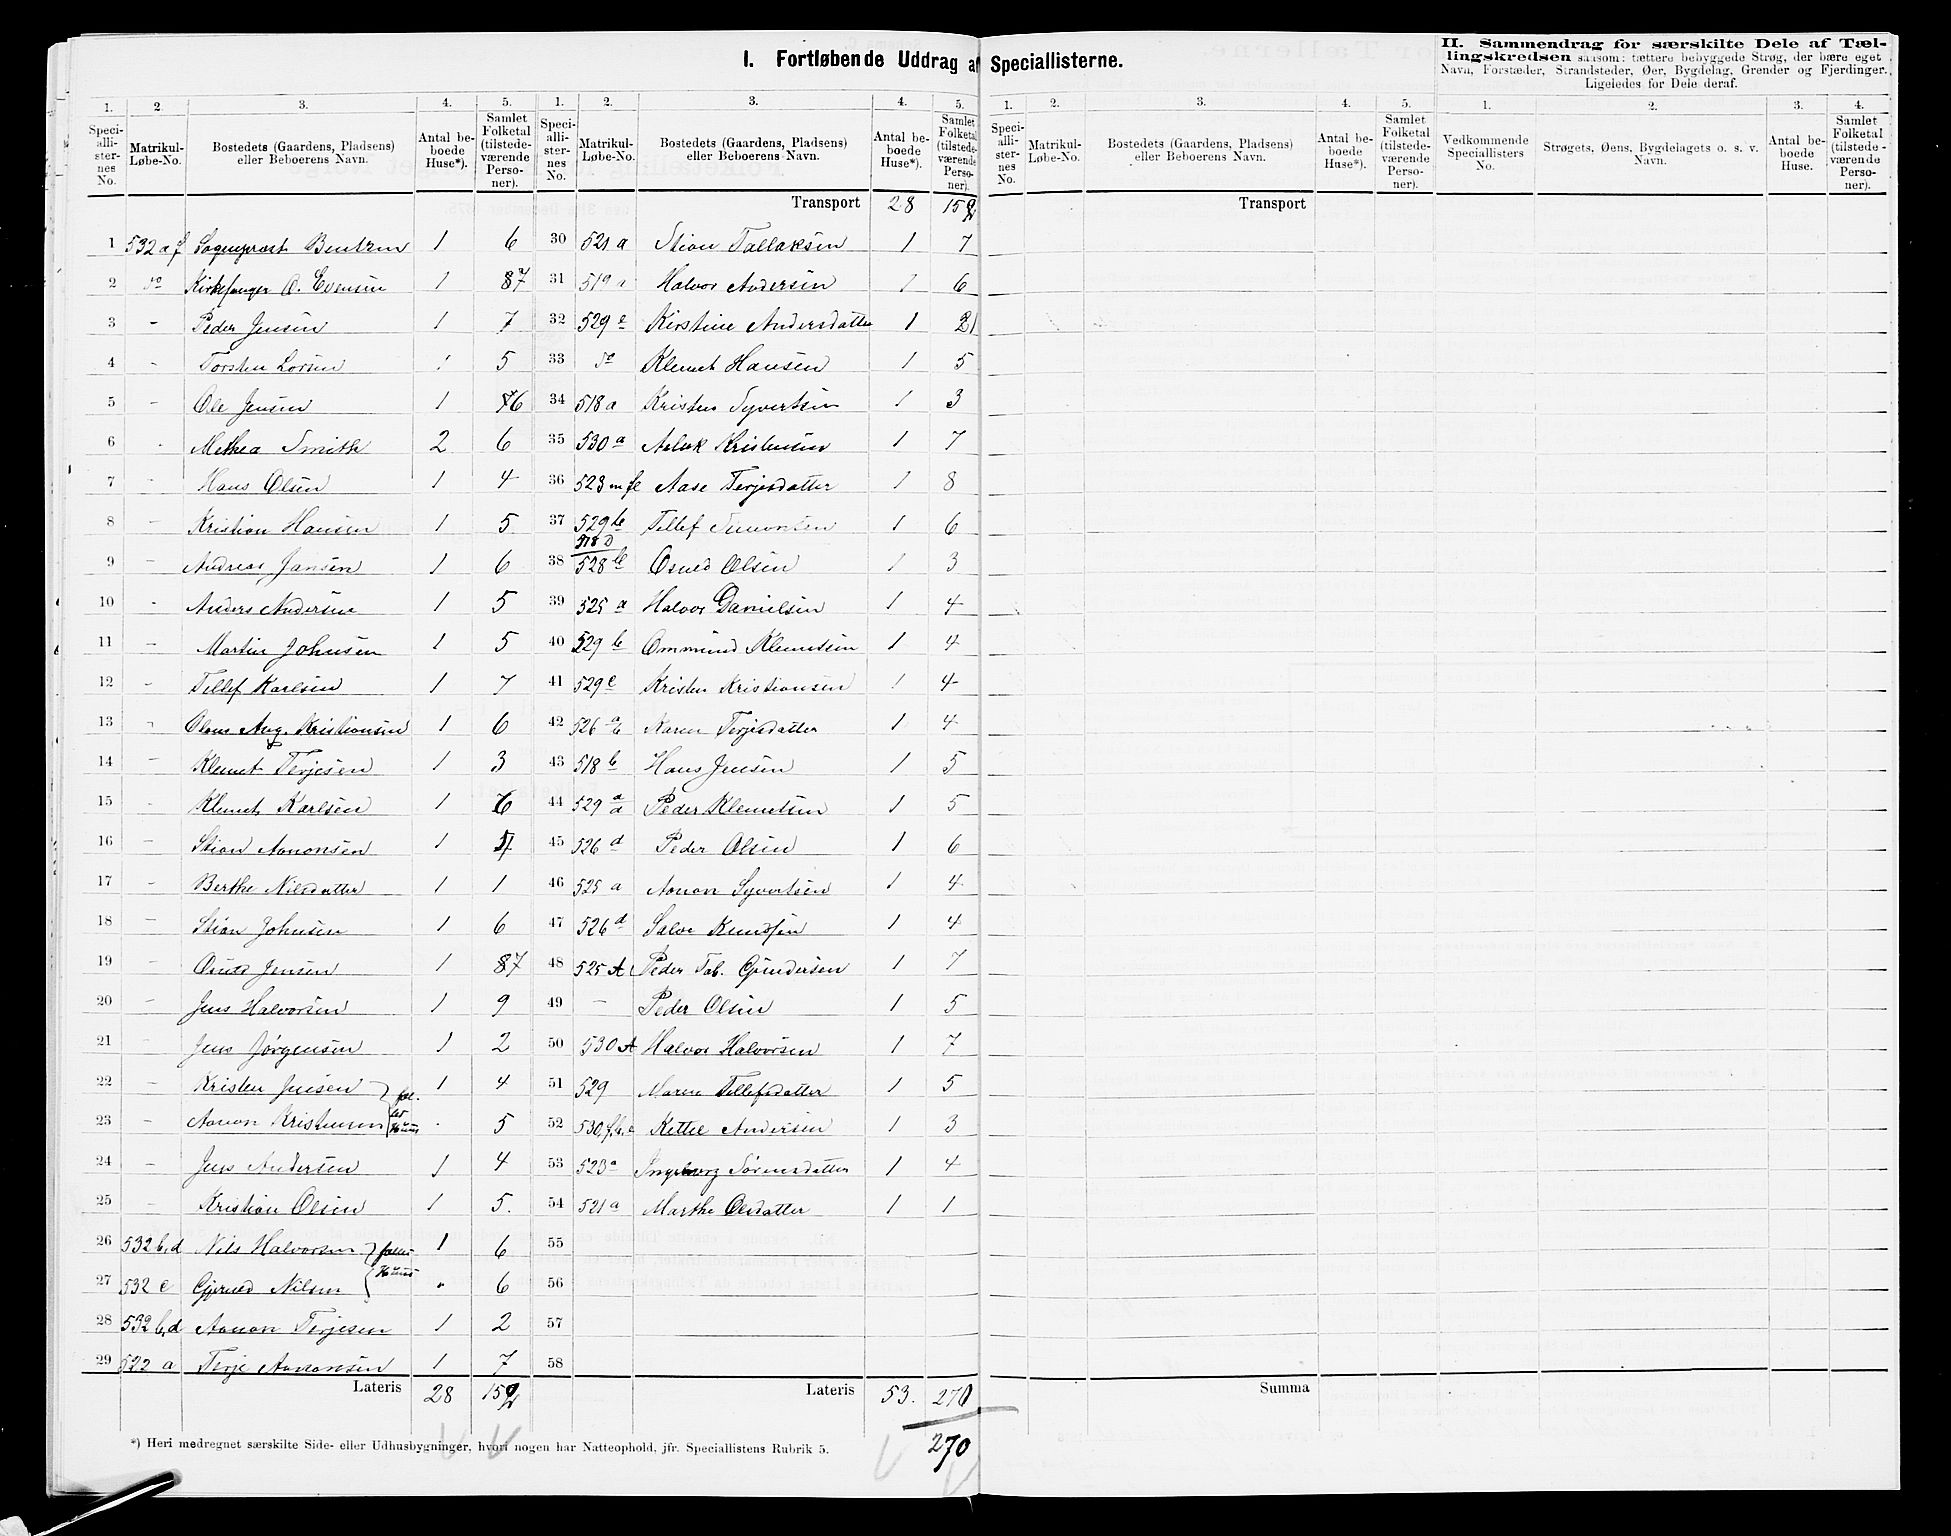 I. Fortløbende Uddrag af Speciallisterne.
II. Sammendrag for særskilte Dele af Tæl-
lingskredsen saasom: tættere bebyggede Strøg, der bære eget
Navn, Forstæder, Strandsteder, Øer, Bygdelag, Grender og Fjerdinger.
Ligeledes for Dele deraf.
1. 2. 3. 4. 5. 1. 2. 3. 4. 5. 1. 2. 3. 4. 5. 1. 2. 3. 4.
Speci-alli-ster-nes No. Matrikul-Løbe-No. Bostedets (Gaardens, Pladsens) eller Beboerens Navn. Antal be-boede Huse*). Samlet Folketal (tilstede-værende Perso-ner).
Speci-alli-ster-nes No. Matrikul-Løbe-No. Bostedets (Gaardens, Pladsens) eller Beboerens Navn. Antal be-boede Huse*). Samlet Folketal (tilstede-værende Perso-ner).
Speci-alli-ster-nes No. Matrikul-Løbe-No. Bostedets (Gaardens, Pladsens) eller Beboerens Navn. Antal be-boede Huse*). Samlet Folketal (tilstede-værende Perso-ner).
Vedkommende Speciallisters No. Strøgets, Øens, Bygdelagets o. s. v. Navn. Antal be-boede Huse. Samlet Folketal (tilstede-værende Perso-ner).
Transport 28 Transport
1 532 a f Sogneprest Bentzen 1 6
2 do Kirkesanger O. Evensen 1 7
3 - Peder Jensen 1 7
4 - Torsten Larsen 1 5
5 - Ole Jensen 1 6
6 - Methea Smith 2 6
7 - Hans Olsen 1 4
8 - Kristian Hansen 1 5
9 - Andreas Jansen 1 6
10 - Anders Andersen 1 5
11 - Martin Johnsen 1 5
12 - Tellef Karlsen 1 7
13 - Olaus Aug. Kristiansen 1 6
14 - Klemet Terjesen 1 3
15 - Klemet Karlsen 1 6
16 - Stian Aanonsen 1
17 - Berthe Nilsdatter 1 1
18 - Stian Johnsen 1 6
19 - Jensen 1 7
20 - Jens Halvorsen 1 9
21 - Jens Jørgensen 1 2
22 - Kristen Jensen 1 4
23 - Aanon Kristensen 5
24 - Jens Andersen 1 4
25 - Kristian Olsen 1 5.
26 532 b,d Nils Halvorsen 1 6
27 532 e Gjeruld Nilsen " 6
28 532 b,d Aanon Terjesen 1 2
29 522 a Terje Aanonsen 1 7
Lateris 28
30 521 a Stian Tallaksen 1 7
31 519 a Halvor Andersen 1 6
32 529 e Kirstine Andersdatter 1
33 do Klemet Hansen 1 5
34 518 a Kristen Syvertsen 1 3
35 530 a Aslak Kristensen 1 7
36 523 Aase Terjesdatter 1 8
37 529 Tellef Simonsen 1 6
38 528 Osuld Olsen 1 3
39 525 a Halvor Danielsen 1 4
40 529 b Ommund Klemetsen 1 4
41 529 e Kristen Kristiansen 1 4
42 526 Karen Terjesdatter 1 4
43 518 b Hans Jensen 1 5
44 529 Peder Klemetsen 1 5
45 526 d Peder Olsen 1 6
46 525 a Aanon Syvertsen 1 4
47 526 d Salve Knudsen 1 4
48 525 A Peder Tob. Gundersen 1 7
49 - Peder Olsen 1 5
50 530 A Halvor Halvorsen 1 7
51 529 Maren Tellefsdatter 1 5
52 530 Kettel Andersen 1 3
53 523 a Ingeborg Sørensdatter 1 4
54 521 a Marthe Olsdatter 1 1
55
56
57
58
Lateris 53. 270
Summa
270
*) Heri medregnet særskilte Side- eller Udhusbygninger, hvori nogen har Natteophold, jfr. Speciallistens Rubrik 5.